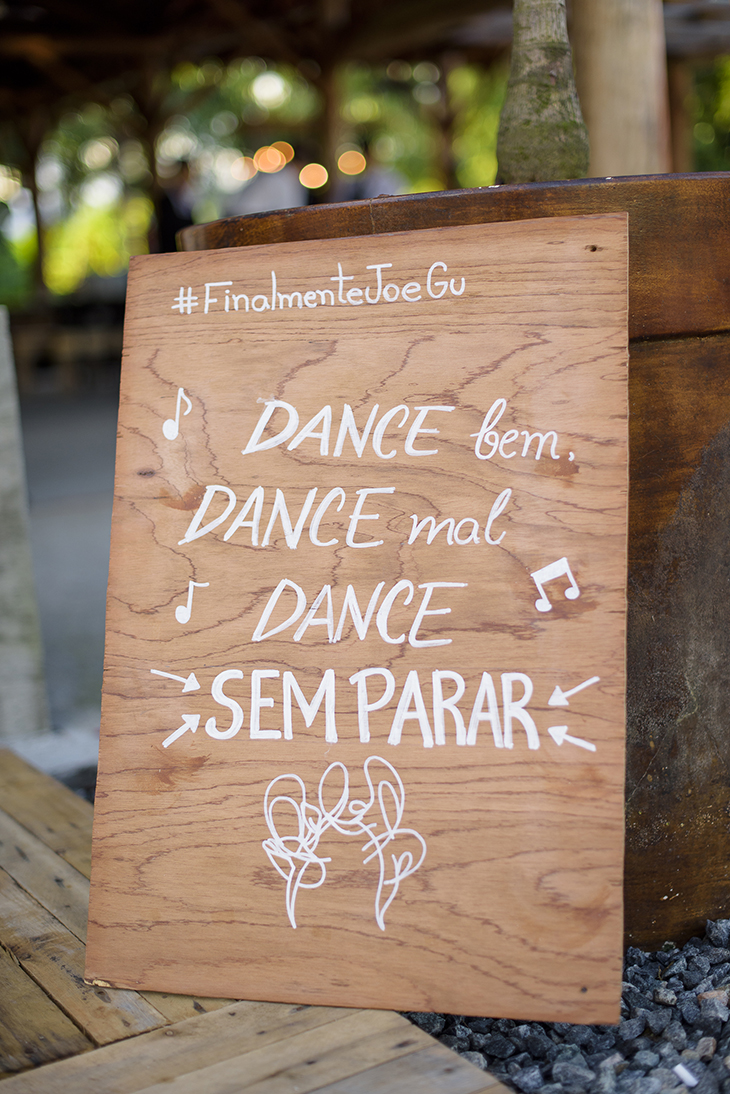 #FinalmenteJoeGu
DANCE bem,
DANCE mal
DANCE
SEM PARAR